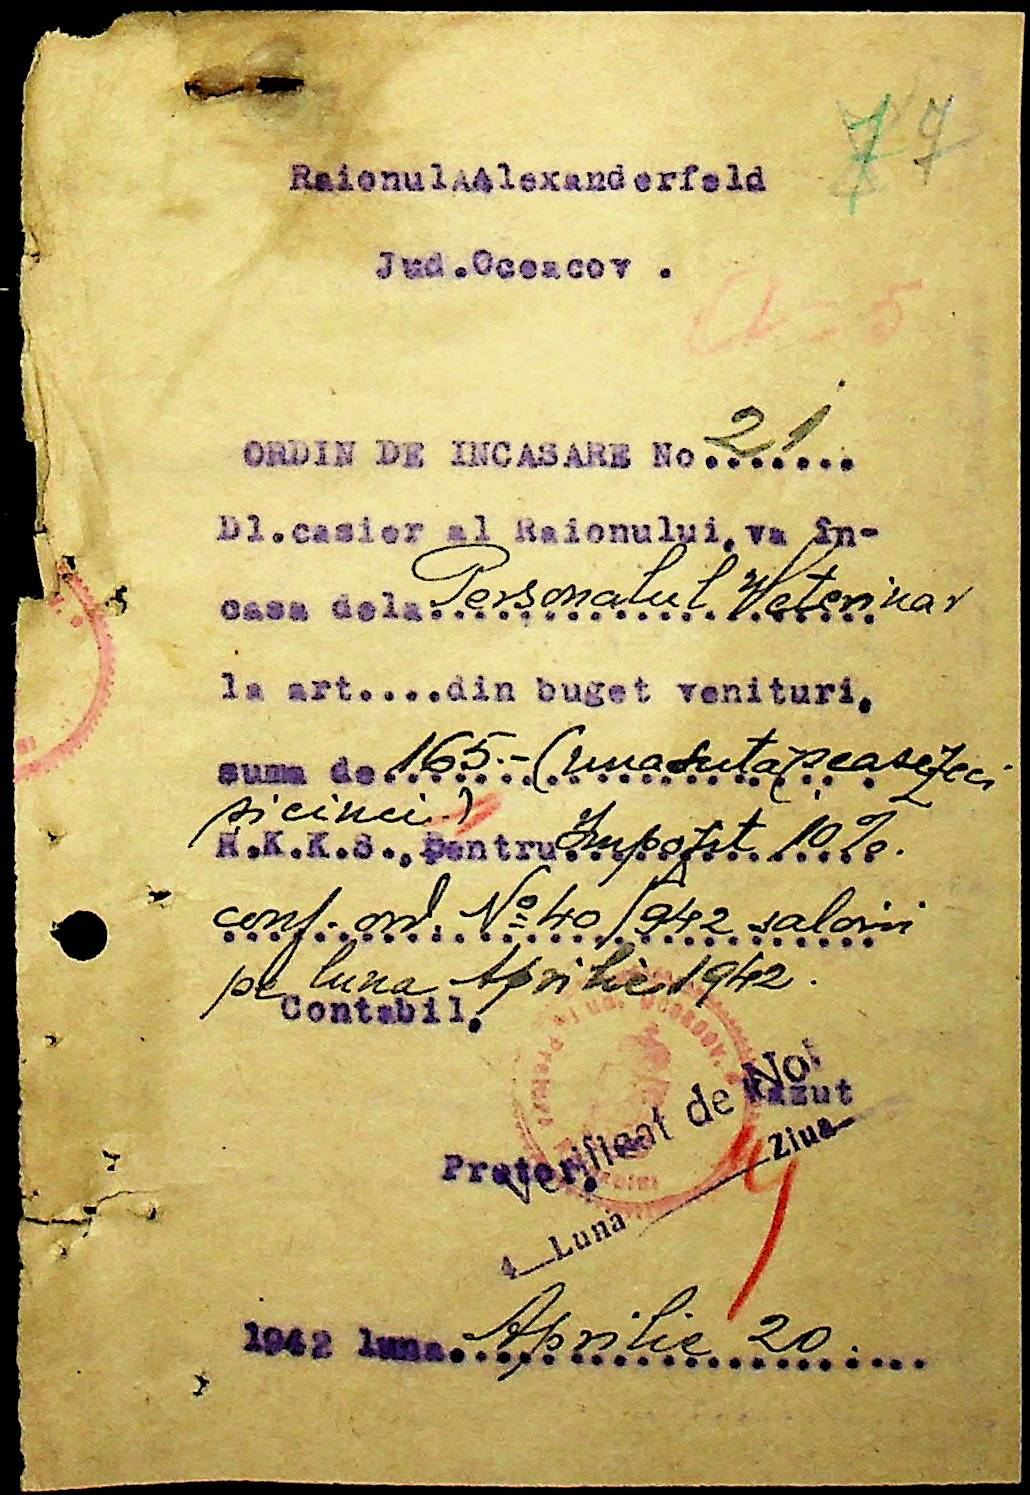 77
Raionul Alexanderfeld
Jud.Oceacov .
a=5
ORDIN DE INCASARE No 21.......
Dl.casier al Raionului,va în-
casa dela Personalul Veterinar
la art....din buget venituri,
suma de 165.- (una suta șeasezeci
și cinci)
R.K.K.S., Pentru Impozit 10%.
conf. ord. No 40/942 salarii
pe luna Aprilie 1942.
Contabil,
Jud. Oceacov.
Verificat de Noi
Vazut
Pretor,
4 Luna Ziua
1942 luna Aprilie 20.